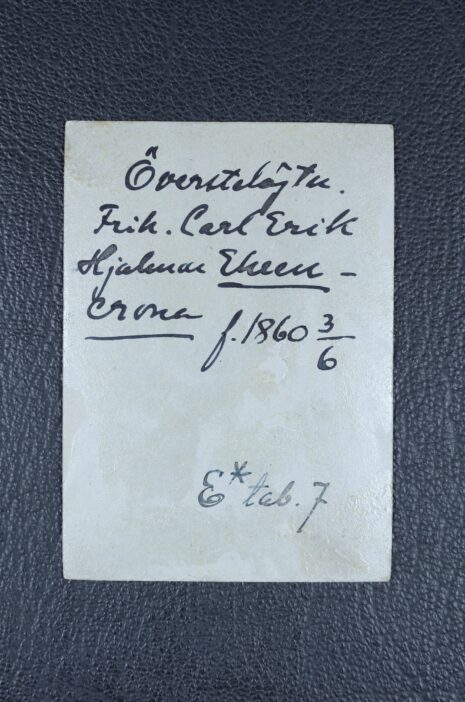 Överstelöjtn.
Frih. Carl Erik
Hjalmar Ehren-
crona
f. 1860 3/6
E* tab. 7